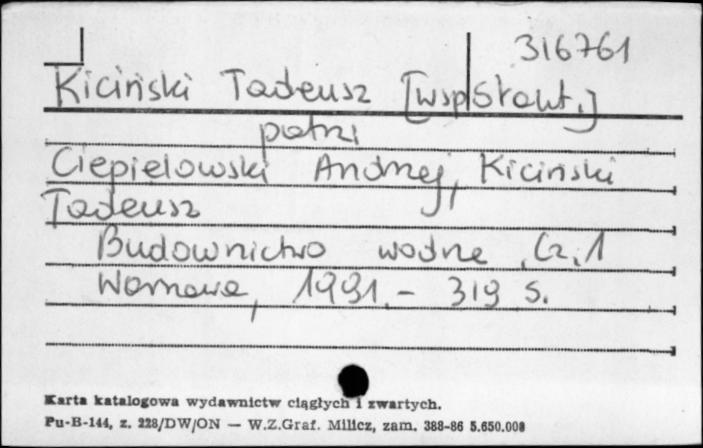 316761
Kiciński Tadeusz [współaut.]
patrz
Ciepielowski Andrzej, Kiciński
Tadeusz
Budownictwo wodne, Cz. 1
Warszawa, 1991. - 319 s.
Karta katalogowa wydawnictw ciągłych i zwartych.
Pu-B-144, z. 228/DW/ON — W.Z.Graf. Milicz, zam. 388-86 5.650.000